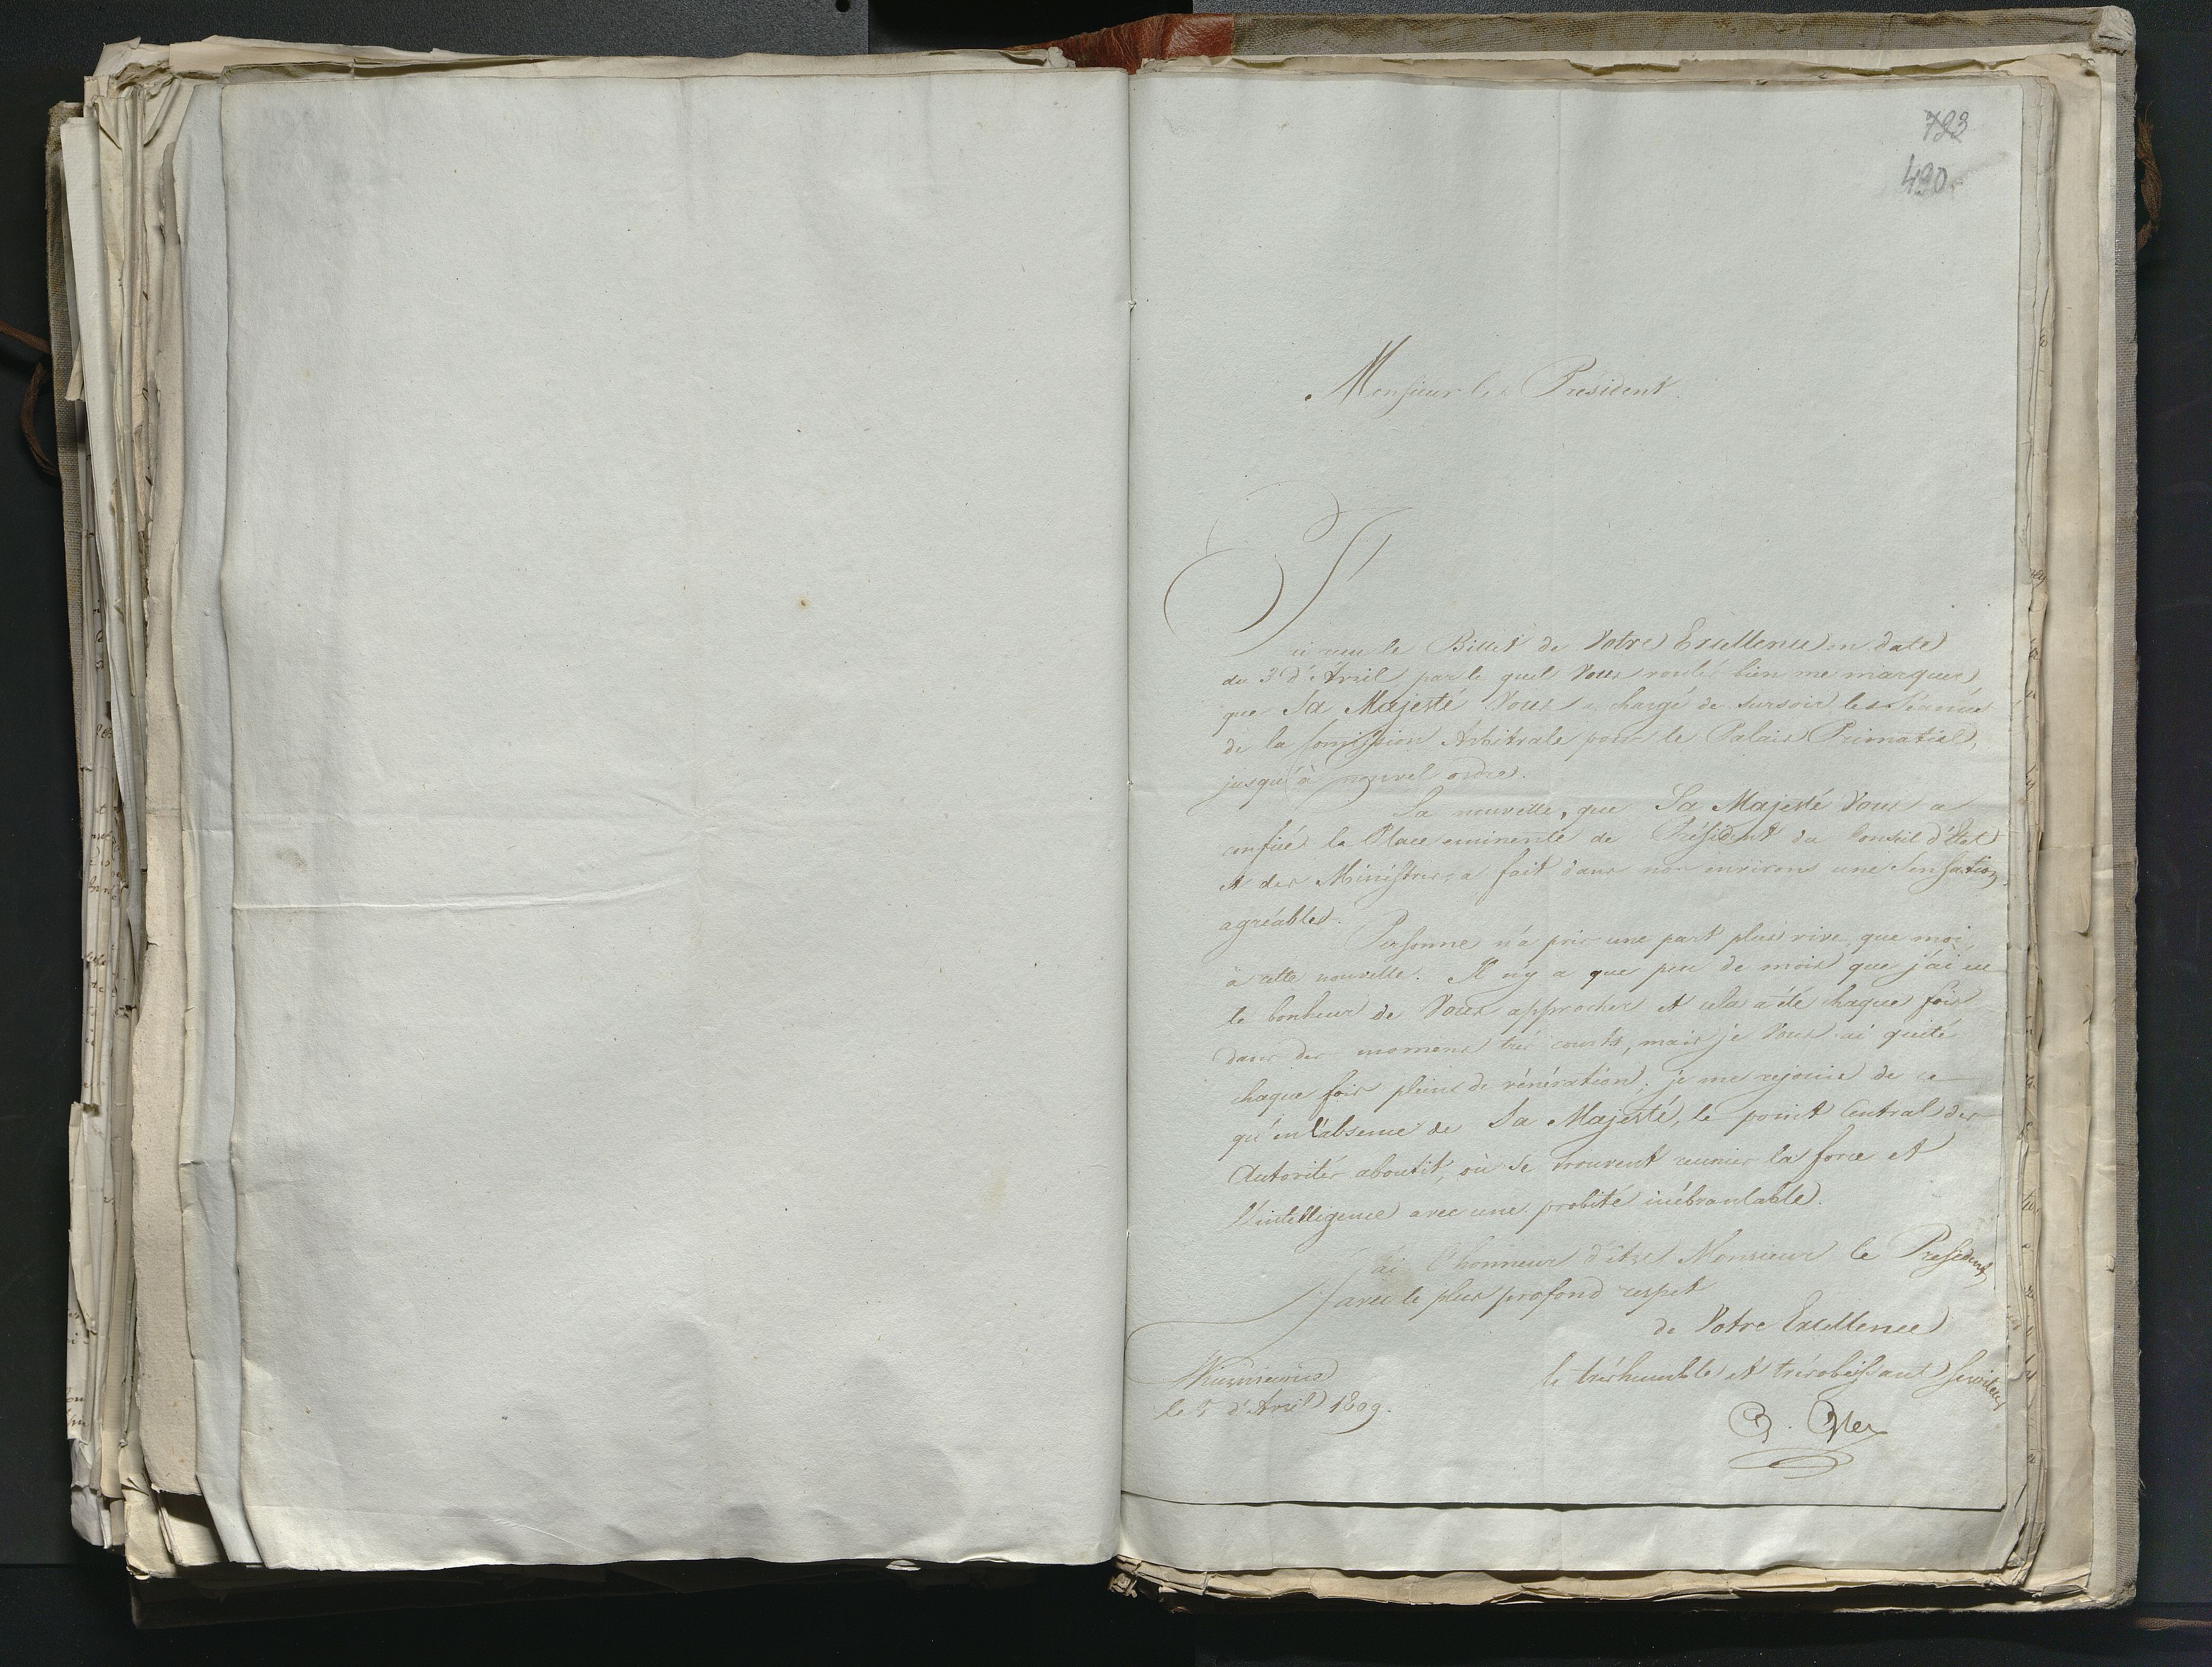 793
490
Monsieur le Président.
J'
ai reçu le Billet de Votre Excellence en date
du 3 d'Avril par le quel Vous voulés bien me marquer
que Sa Majesté Vous a chargé de sursoir les Séances
de la Comission Arbitrale pour le Palais Primatial,
jusqu'à nouvel ordre.
La nouvelle, que Sa Majesté Vous a
confié la Place eminente de Président du Conseil d'Etat
et des Ministres, a fait dans nos environs une Sensation
agréable.
Personne n'a pris une part plus vive que moi,
à cette nouvelle. Il n'y a que peu de mois que j'ai eu
le bonheur de Vous approcher et cela a été chaque fois
dans des momens très courts, mais je Vous ai quité
chaque fois plein de vénération; je me rejouis de ce
qu'en l'absence de Sa Majesté, le point Central des
Autorités aboutit, où se trouvent reunies la force et
l'intelligence avec une probité inébranlable.
J'ai l'honneur d'être Monsieur le President
avec le plus profond respet
de Votre Excellence
le très humble et très obeissant serviteur
le 5 d'Avril 1809.